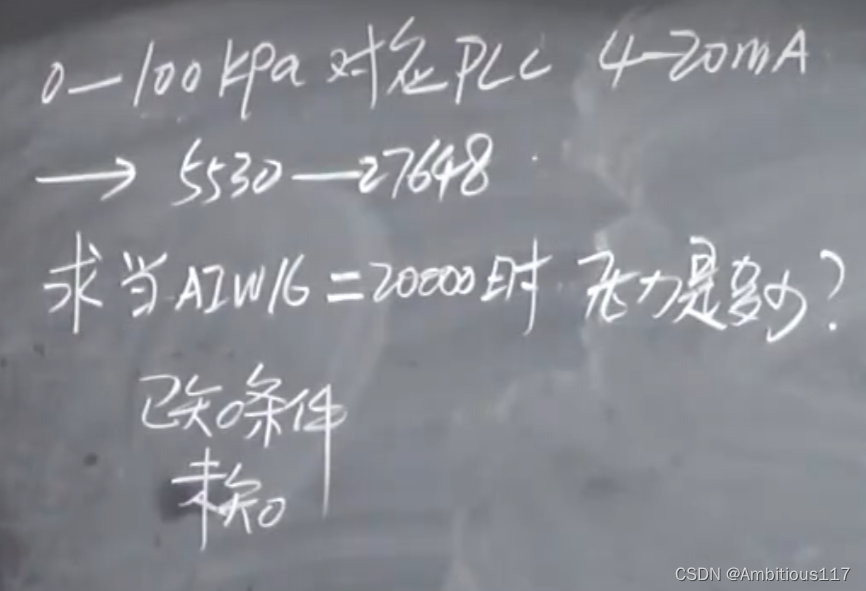 0—100kpa 对应PLC 4-20mA
→ 5530—27648
求当AIW16=20000时 压力是多少?
已知条件
未知
CSDN @Ambitious117